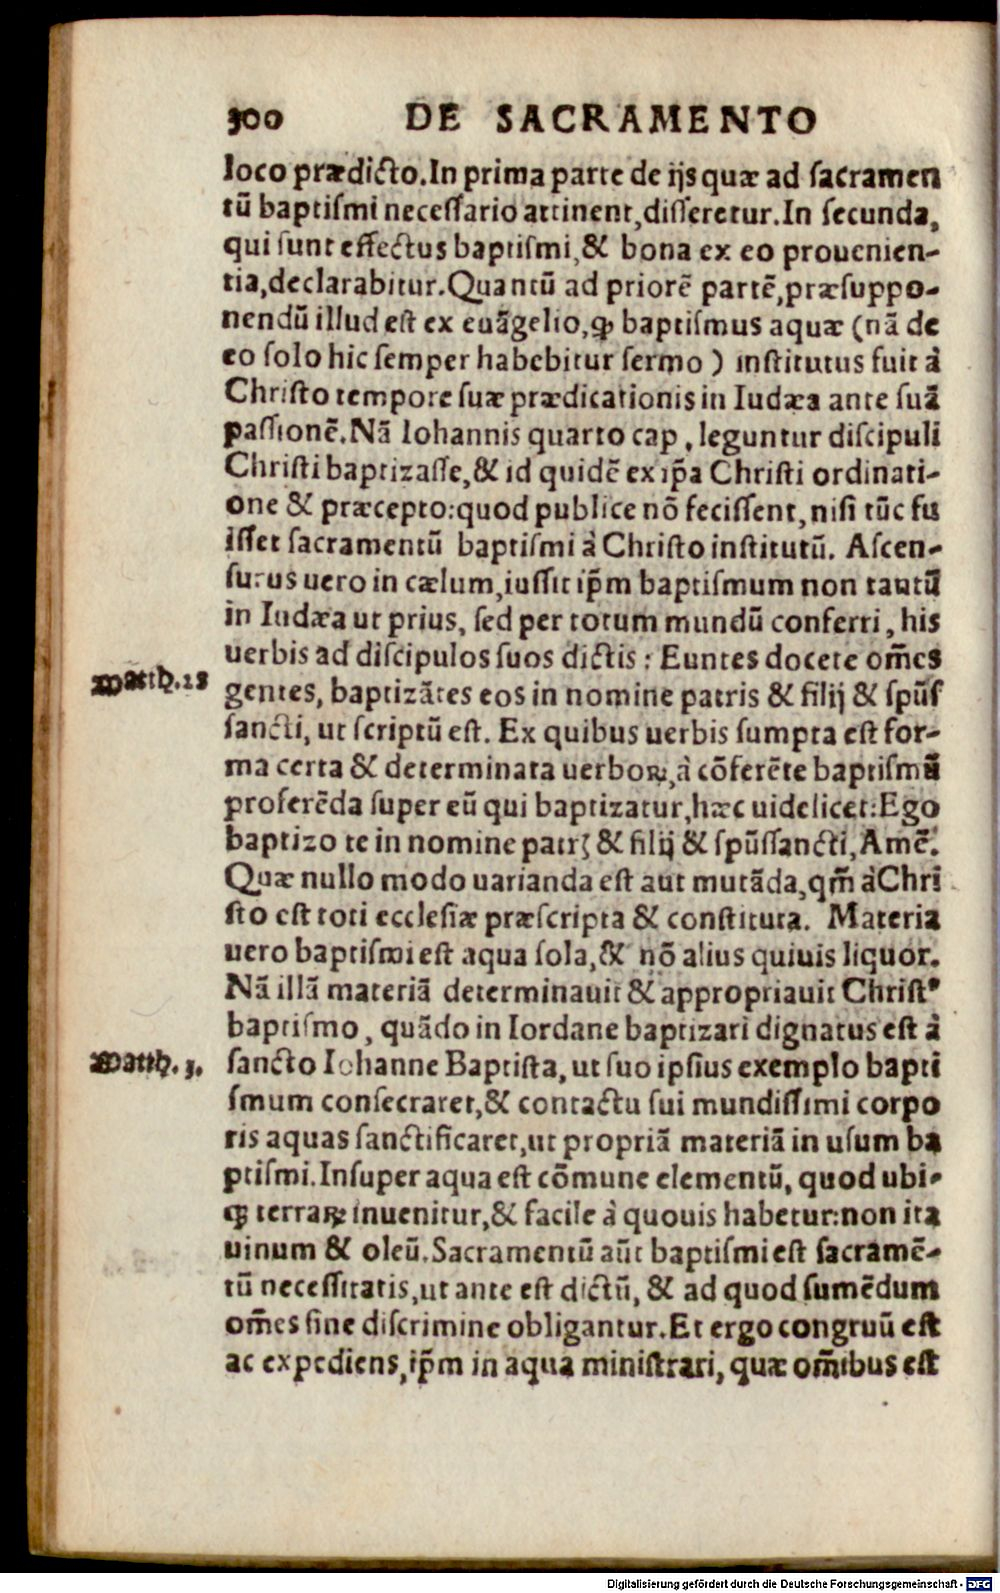 300 DE SACRAMENTO
loco prædicto. In prima parte de ijs quæ ad ſacramen
tū baptiſmi neceſſario attinent, diſſeretur. In ſecunda,
qui ſunt effectus baptiſmi, & bona ex eo prouenien-
tia, declarabitur. Quantū ad priorē partē, præſuppo-
nendū illud eſt ex euāgelio, ꝙ baptiſmus aquæ (nā de
eo ſolo hic ſemper habebitur ſermo) inſtitutus fuit à
Chriſto tempore ſuæ prædicationis in Iudæa ante ſuā
paſſionē. Nā Iohannis quarto cap, leguntur diſcipuli
Chriſti baptizaſſe, & id quidē ex ip̄a Chriſti ordinati-
one & præcepto: quod publice nō feciſſent, niſi tūc fu
iſſet ſacramentū baptiſmi à Chriſto inſtitutū. Aſcen-
ſurus uero in cælum, iuſſit ip̄m baptiſmum non tantū
in Iudæa ut prius, ſed per totum mundū conferri, his
uerbis ad diſcipulos ſuos dictis: Euntes docete om̄es
Matth. 28
gentes, baptizātes eos in nomine patris & filij & ſpūſ
ſancti, ut ſcriptū eſt. Ex quibus uerbis ſumpta eſt for-
ma certa & determinata uerboꝝ, à cōferēte baptiſmū
proferēda ſuper eū qui baptizatur, hæc uidelicet: Ego
baptizo te in nomine patrꝭ & filij & ſpūſſancti, Amē.
Quæ nullo modo uarianda eſt aut mutāda, qm̄ à Chri
ſto eſt toti eccleſiæ præſcripta & conſtituta. Materia
uero baptiſmi eſt aqua ſola, & nō alius quiuis liquor.
Nā illā materiā determinauit & appropriauit Chriſtꝰ
baptiſmo, quādo in Iordane baptizari dignatus eſt à
Matth. 3.
ſancto Iohanne Baptiſta, ut ſuo ipſius exemplo bapti
ſmum conſecraret, & contactu ſui mundiſſimi corpo
ris aquas ſanctificaret, ut propriā materiā in uſum ba
ptiſmi. Inſuper aqua eſt cōmune elementū, quod ubi-
ꝗ terraꝝ inuenitur, & facile à quouis habetur: non ita
uinum & oleū. Sacramentū aūt baptiſmi eſt ſacramē-
tū neceſſitatis, ut ante eſt dictū, & ad quod ſumēdum
om̄es ſine diſcrimine obligantur. Et ergo congruū eſt
ac expediens, ip̄m in aqua miniſtrari, quæ om̄ibus eſt
Digitalisierung gefördert durch die Deutsche Forschungsgemeinschaft - DFG